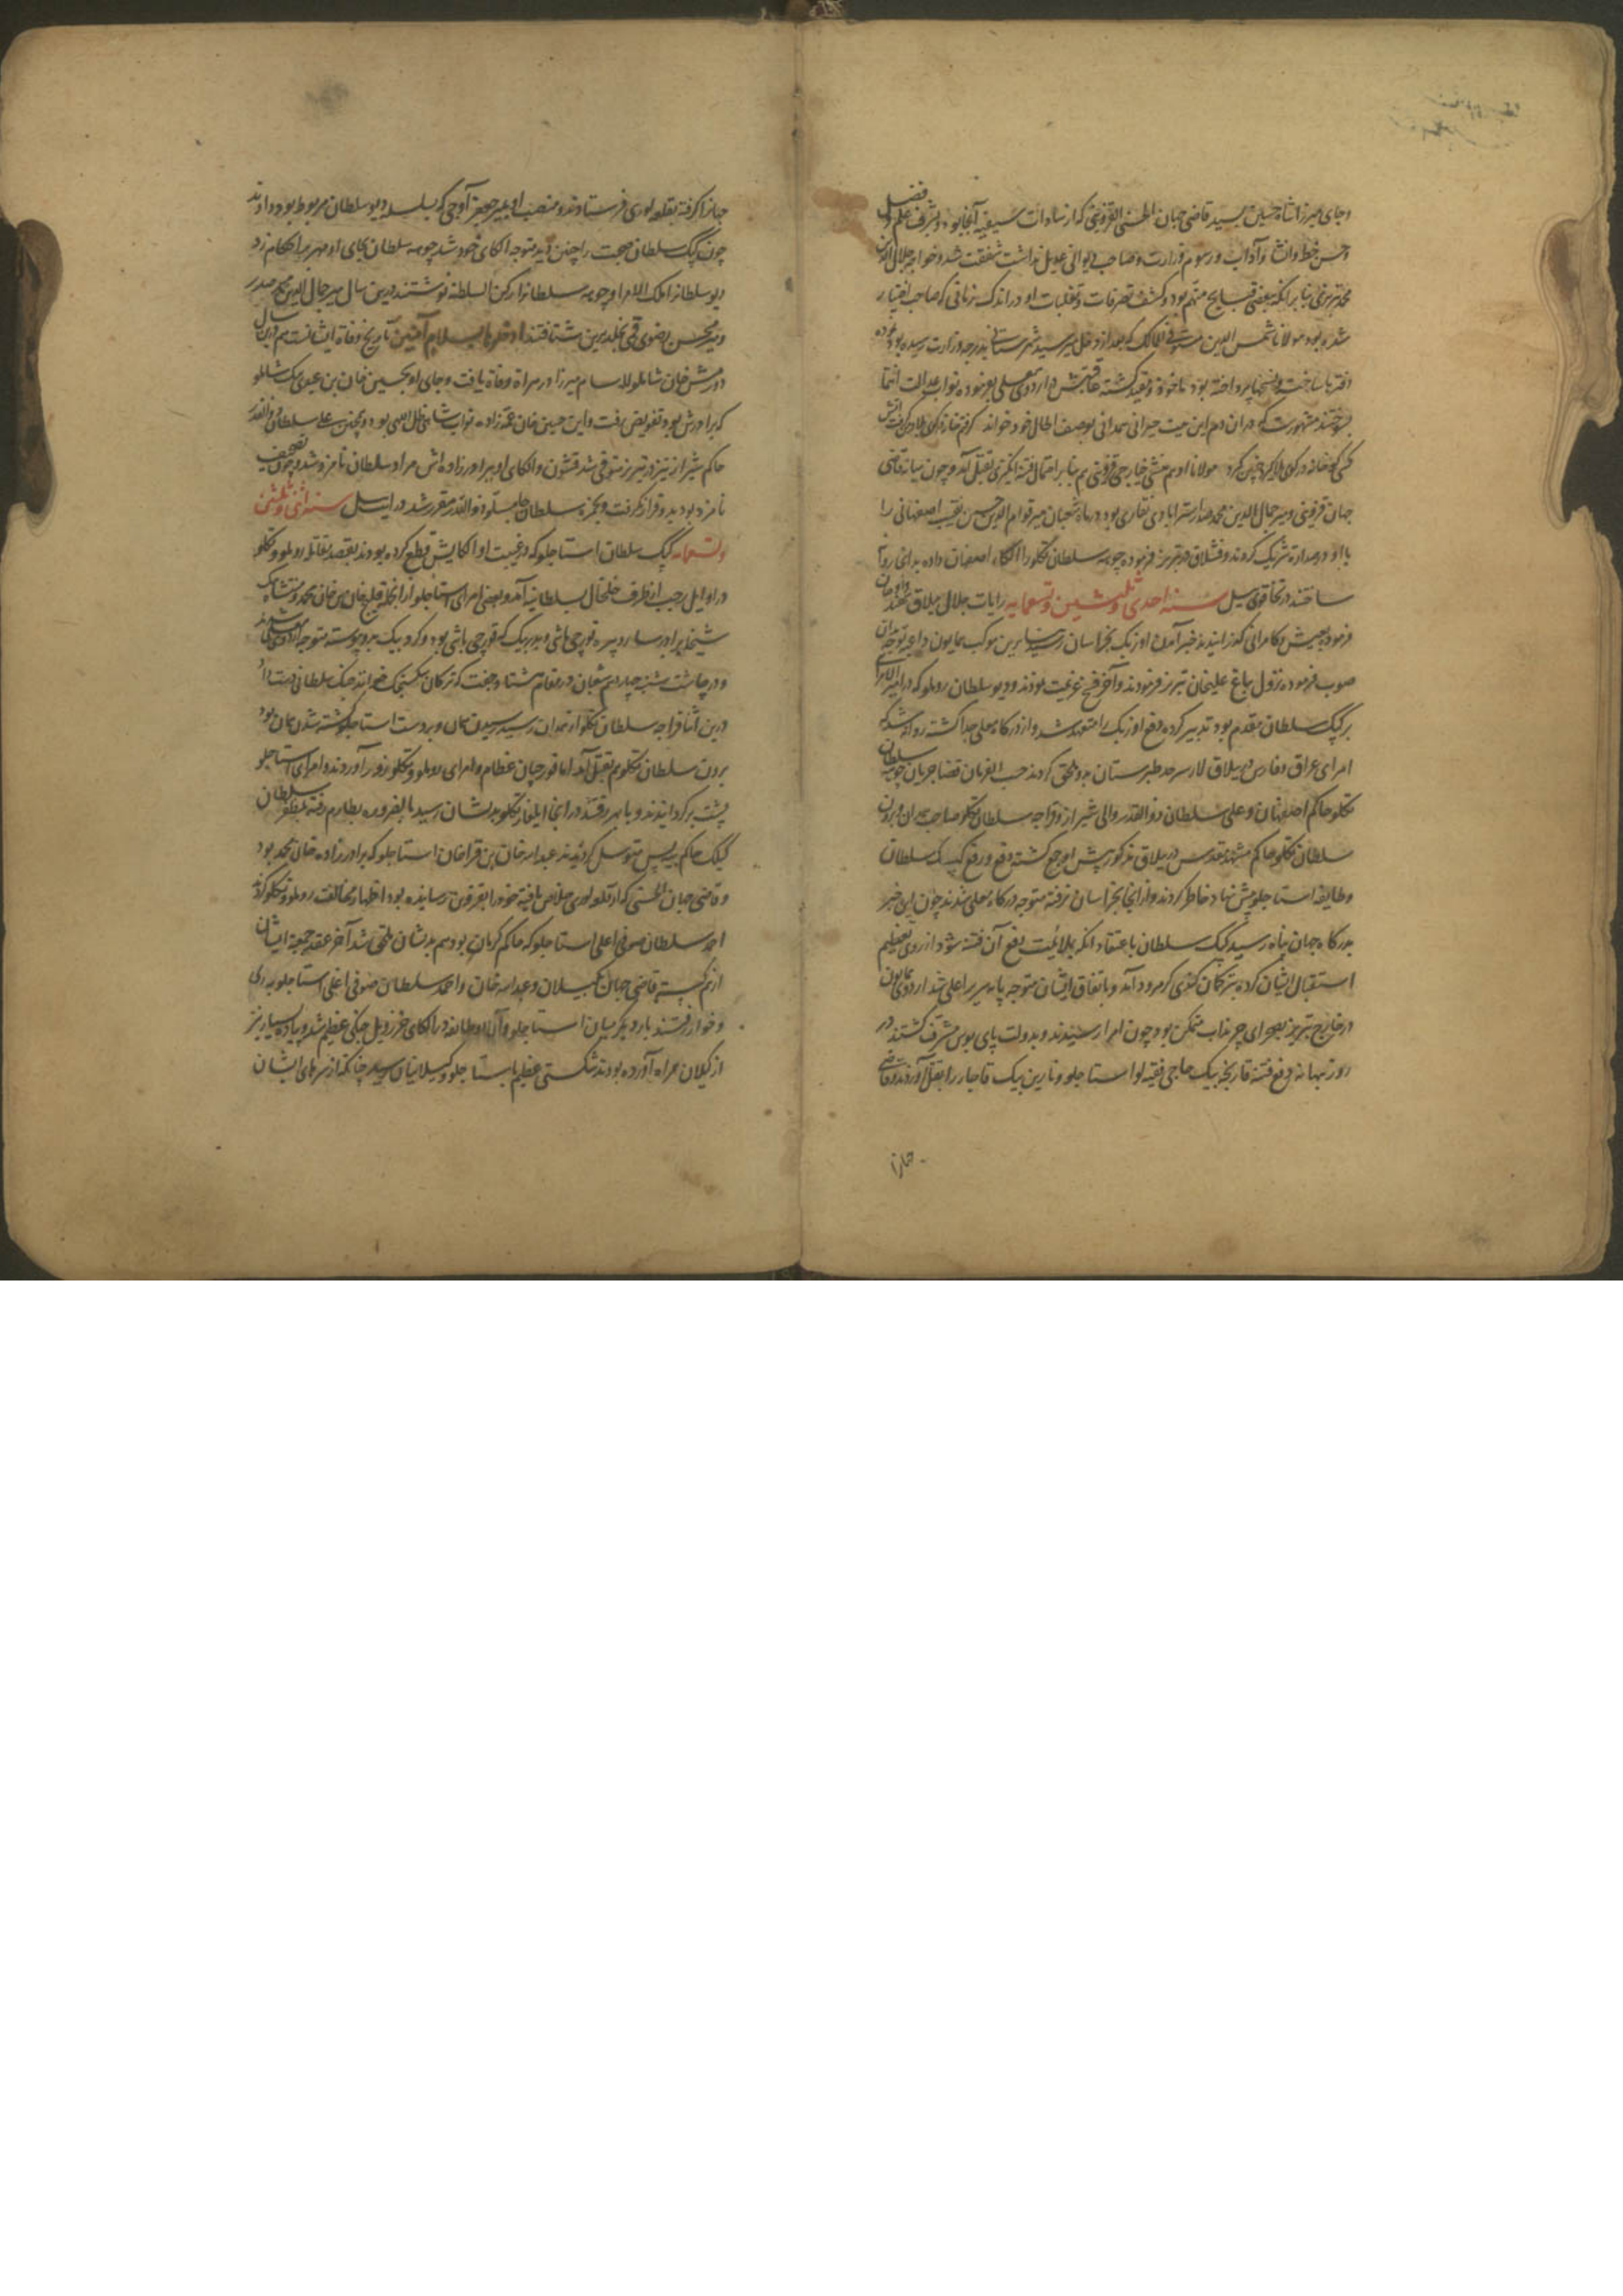 وجای میرزا شاه حسین بسید قاضی جهان الحسنی القزوینی که از سادات سیفیه آنجا بود و بشرف علم و فضل
و حسن خط و انشا و آداب و رسوم وزارت و صاحب دیوانی عدیل نداشت شفقت شد و خواجه جلال الدین
محمد تبریزی بنا بر آنکه ببعضی قبایح متهم بود و کشف تصرفات و تغلبات او در اندک زمانی که صاحب اختیار
شده بود مولانا شمس الدین مستوفی الممالک که بعد از دخل میر سید شرستانی بدرجه وزارت رسیده بود نموده
دفترها ساخت و نسخها پرداخته بود ماخوذ و مقید گشته عاقبتش در اردوی معلی بفرموده نواب عدالت انتما
بسوختند مشهورست که در آن دم این بیت حیرانی همدانی بوصف الحال خود خواند گرفتم خانه در کوی بلا در من گرفت آتش
کسی کو خانه در کوی بلا گیرد چنین گیرد مولانا ادهم منشی خیارجی قزوینی هم بنا بر احتمال فتنه انگیزی بقتل آمد و چون میانه قاضی
جهان قزوینی و میر جمال الدین محمد صدر استرابادی نقاری بود در ماه شعبان میر قوام الدین حسین نقیب اصفهانی را
با او در صدارت شریک کردند و قشلاق در تبریز فرموده چوهه سلطان تکلو را الکاء اصفهان داده بدانجا روانه
ساختند در تخاقوی ئیل سنه احدی و ثلثین و تسعمایه رایات جلال میلاق سهند
فرمود بعیش و کامرانی گذرانیدند خبر آمدن اوزبک بخراسان رسید بنابرین موکب همایون داعیه توجه بدان
صوب فرموده نزول بباغ علیخان تبریز فرمودند و آخر فسخ عزیمت نمودند و دیو سلطان روملو که در امیر الامرای
بر کپک سلطان مقدم بود تدبیر کرده دفع اوزبک را متعهد شد و از درگاه معلی جدا گشته روانه شد که
امرای عراق و فارس در ییلاق لار سرحد طبرستان بدو ملحق گردند حسب الفرمان قضا جریان چوهه سلطان
تکلو حاکم اصفهان و علی سلطان ذوالقدر والی شیراز و قراجه سلطان تکلو صاحب همدان و برون
سلطان تکلو حاکم مشهد مقدس در ییلاق مذکور پیش او جمع گشته دفع و رفع کپک سلطان
و طایفه استاجلو پیش نهاد خاطر کردند و از آنجا بخراسان نرفته متوجه درگاه معلی شدند چون این خبر
بدرگاه جهان پناه رسید کپک سلطان باعتقاد آنکه بملایمت دفع آن فتنه شود از روی تعظیم
استقبال ایشان کرده بترکان کندی کرمرود آمد و باتفاق ایشان متوجه پایه سریر اعلی شد اردوی همایون
در خارج تبریز بصحرای چرنداب متمکن بود چون امرا رسیدند و بدولت پای بوس مشرف گشتند در
روز بهانه دفع فتنه قارنجه بیک حاجی فقیه لو استاجلو و نارین بیک قاجار را بقتل آوردند و قاضی
جهانرا
جهانرا گرفته بقلعه لوری فرستادند و منصب او بمیر جعفر آوجی که بسلسله دیو سلطان مربوط بود دادند
چون کپک سلطان صحبت را چنین دید متوجه الکای خود شد چوهه سلطان بجای او مهر بر احکام زد
دیو سلطانرا ملک الامرا و چوهه سلطانرا رکن السلطنه نوشتند درین سال میر جمال الدین محمد صدر
و میر محسن رضوی قمی بخلد برین شتافتند ادخلوها بسلام آمنین تاریخ وفات ایشانست هم درین سال
دورمش خان شاملو لله سام میرزا در هراة وفات یافت و جای او بحسین خان بن عبدی بیک شاملو
که برادرش بود تفویض رفت و این حسین خان عمه زاده نواب شاهی ظل اللهی بود و همچنین علی سلطان ذوالقدر
حاکم شیراز نیز در تبریز متوفی شد قشون و الکای او ببرادر زاده اش مراد سلطان نامزد شد و چون
نامزد بود بدو قرار نگرفت و بحمزه سلطان جامسلو ذوالقدر مقرر شد در ایت ئیل سنه اثنی و ثلثین
و تسعمایه کپک سلطان استاجلو که در غیبت او الکایش قطع کرده بودند بقصد مقاتله روملو و تکلو
در اوایل رجب از طرف خلخال بسلطانیه آمد و بعضی امرای استاجلو از آنجمله قلیج خان بن خان محمد و منتشا بیک
شیخلر برادر ساروپیره قورچی باشی و بدر بیک که قورچی باشی بود و کرد بیک بدو پیوسته متوجه اردوی معلی شدند
و در چاشت شنبه چهاردهم شعبان در مقام شتا و جفت که ترکان سکسنجک خوانند جنگ سلطانی دست داد
درین اثنا قراجه سلطان تکلو از همدان رسید رسیدن همان و بر دست استاجلو کشته شدن همان بود
برون سلطان تکلو هم بقتل آمد اما قورچیان عظام و امرای روملو و تکلو زور آوردند و امرای استاجلو
پشت برگردانیدند و بابهر رفتند در آنجا ایلغار تکلو بدیشان رسید بالضروره بطارم رفته بمظفر سلطان
گیلک حاکم بیه پس متوسل گردیدند عبد الله خان بن قراخان استاجلو که برادر زاده خان محمد بود
و قاضی جهان الحسنی که از قلعه لوری خلاص یافته خود را بقزوین رسانیده بود اظهار مخالفت روملو و تکلو کردند
احمد سلطان صوفی اغلی استاجلو که حاکم کرمان بود هم بدیشان ملحق شد آخر عقد جمعیة ایشان
از هم گسیخته قاضی جهان بگیلان و عبدالله خان و احمد سلطان صوفی اغلی استاجلو بری
و خوار رفتند بار دیگر میان استاجلو و آن دو طایفه در الکای خرزویل جنگی عظیم شد و پیاده بسیار نیز
از گیلان همراه آورده بودند شکستی عظیم باستاجلو و گیلانیان رسید چنانکه از سرهای ایشان